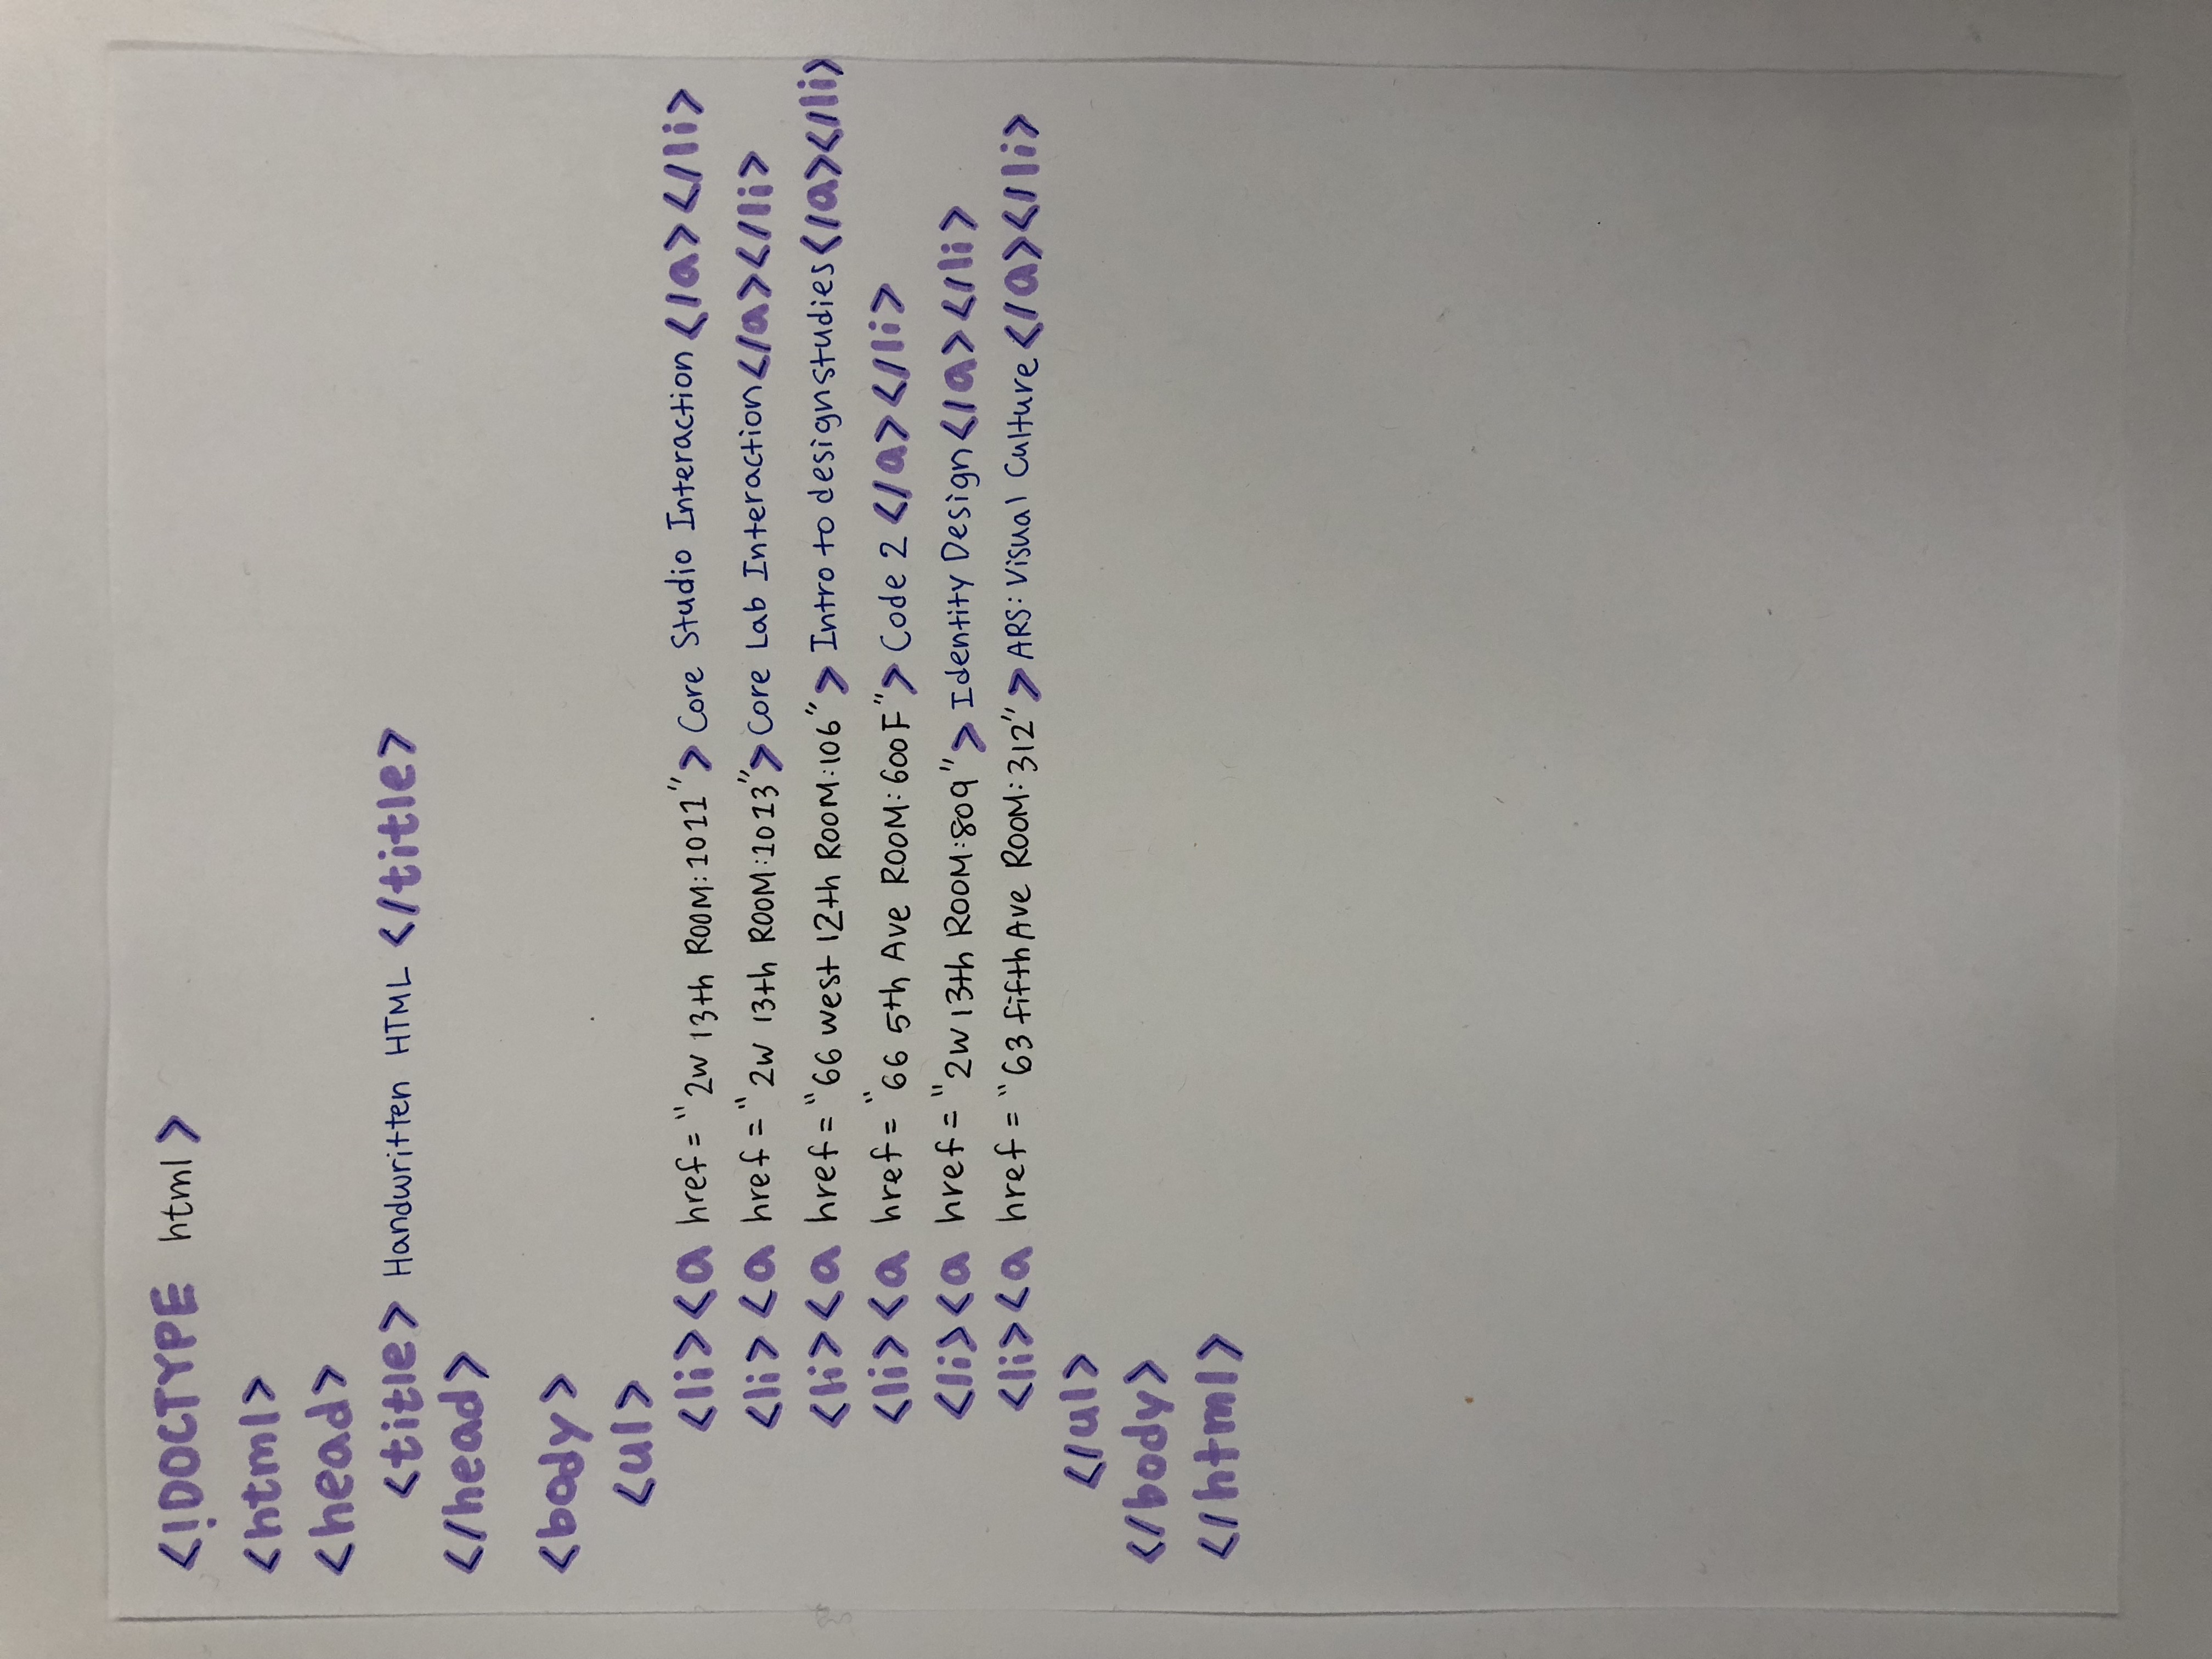 <!DOCTYPE html>
<html>
<head>
<title> Handwritten HTML </title>
</head>
<body>
<ul>
<li><a href="2w 13th ROOM:1011">Core Studio Interaction</a></li>
<li><a href="2w 13th ROOM:1013">Core Lab Interaction</a></li>
<li><a href="66 west 12th ROOM:106"> Intro to design studies</a></li>
<li><a href="66 5th Ave ROOM:600F"> Code 2 </a></li>
<li><a href="2w 13th ROOM:809"> Identity Design</a></li>
<li><a href="63 fifth Ave ROOM:312"> ARS: Visual Culture</a></li>
</ul>
</body>
</html>